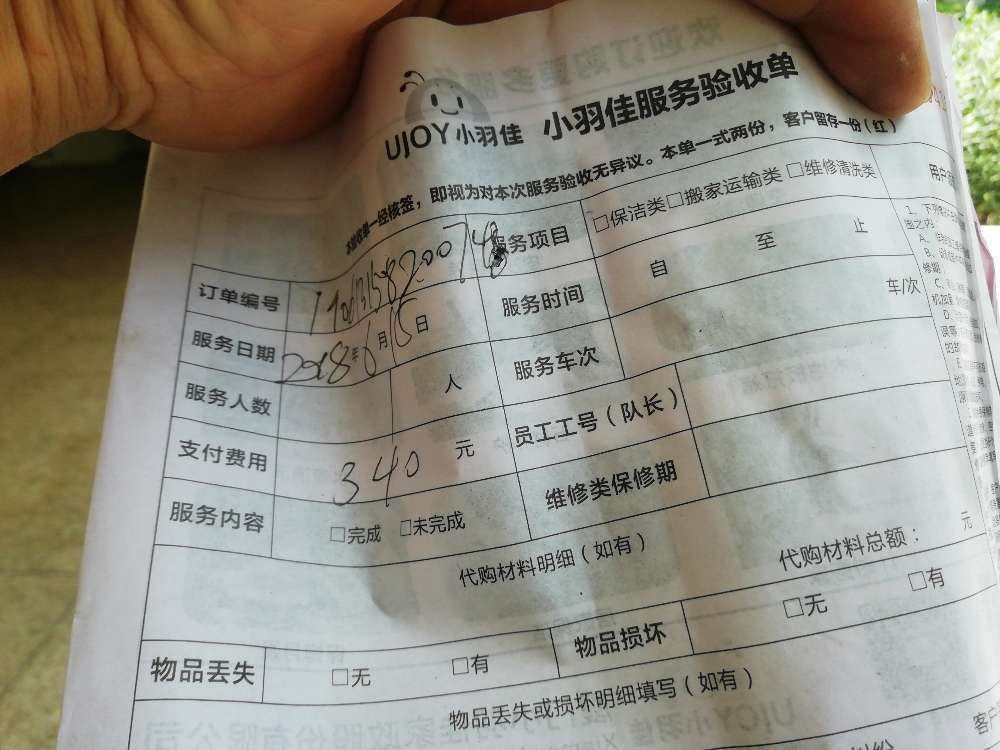 UJOY小羽佳 小羽佳服务验收单
本验收单一经核签，即视为对本次服务验收无异议。本单一式两份，客户留存一份（红）
订单编号 服务项目 □保洁类□搬家运输类□维修清洗类
服务日期 2018年6月15日 服务时间 自 至 止
服务人数 人 服务车次 车/次
支付费用 340 元 员工工号（队长）
服务内容 □完成 □未完成 维修类保修期
代购材料明细（如有） 代购材料总额： 元
物品丢失 □无 □有 物品损坏 □无 □有
物品丢失或损坏明细填写（如有）